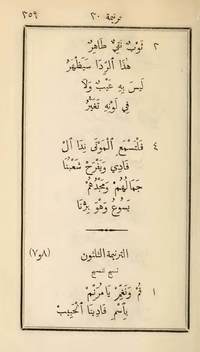 ترنيمة ٣٠ ٣٥٩
٣ ثَوْبٌ نَقِيٌّ طَاهِرٌ
هٰذَا ٱلرِّدَا سَيَظْهَرُ
لَيْسَ بِهِ عَيْبٌ وَلَا
فِي لَوْنِهِ تَغَيُّرُ
٤ فَلْتَسْمَعِ ٱلْمَوْتَى نِدَا ٱلْ
فَادِي وَيَفْرَحْ شَعْبُنَا
جَمَالُهُمْ وَمَجْدُهُمْ
يَسُوعُ وَهْوَ بِرُّنَا
الترنيمة الثلثون (٨و٧)
تسبيح المسيح
١ قُمْ وَنَغِّمْ يَا مُرَنِّمْ
بِٱسْمِ فَادِينَا ٱلْحَبِيبْ